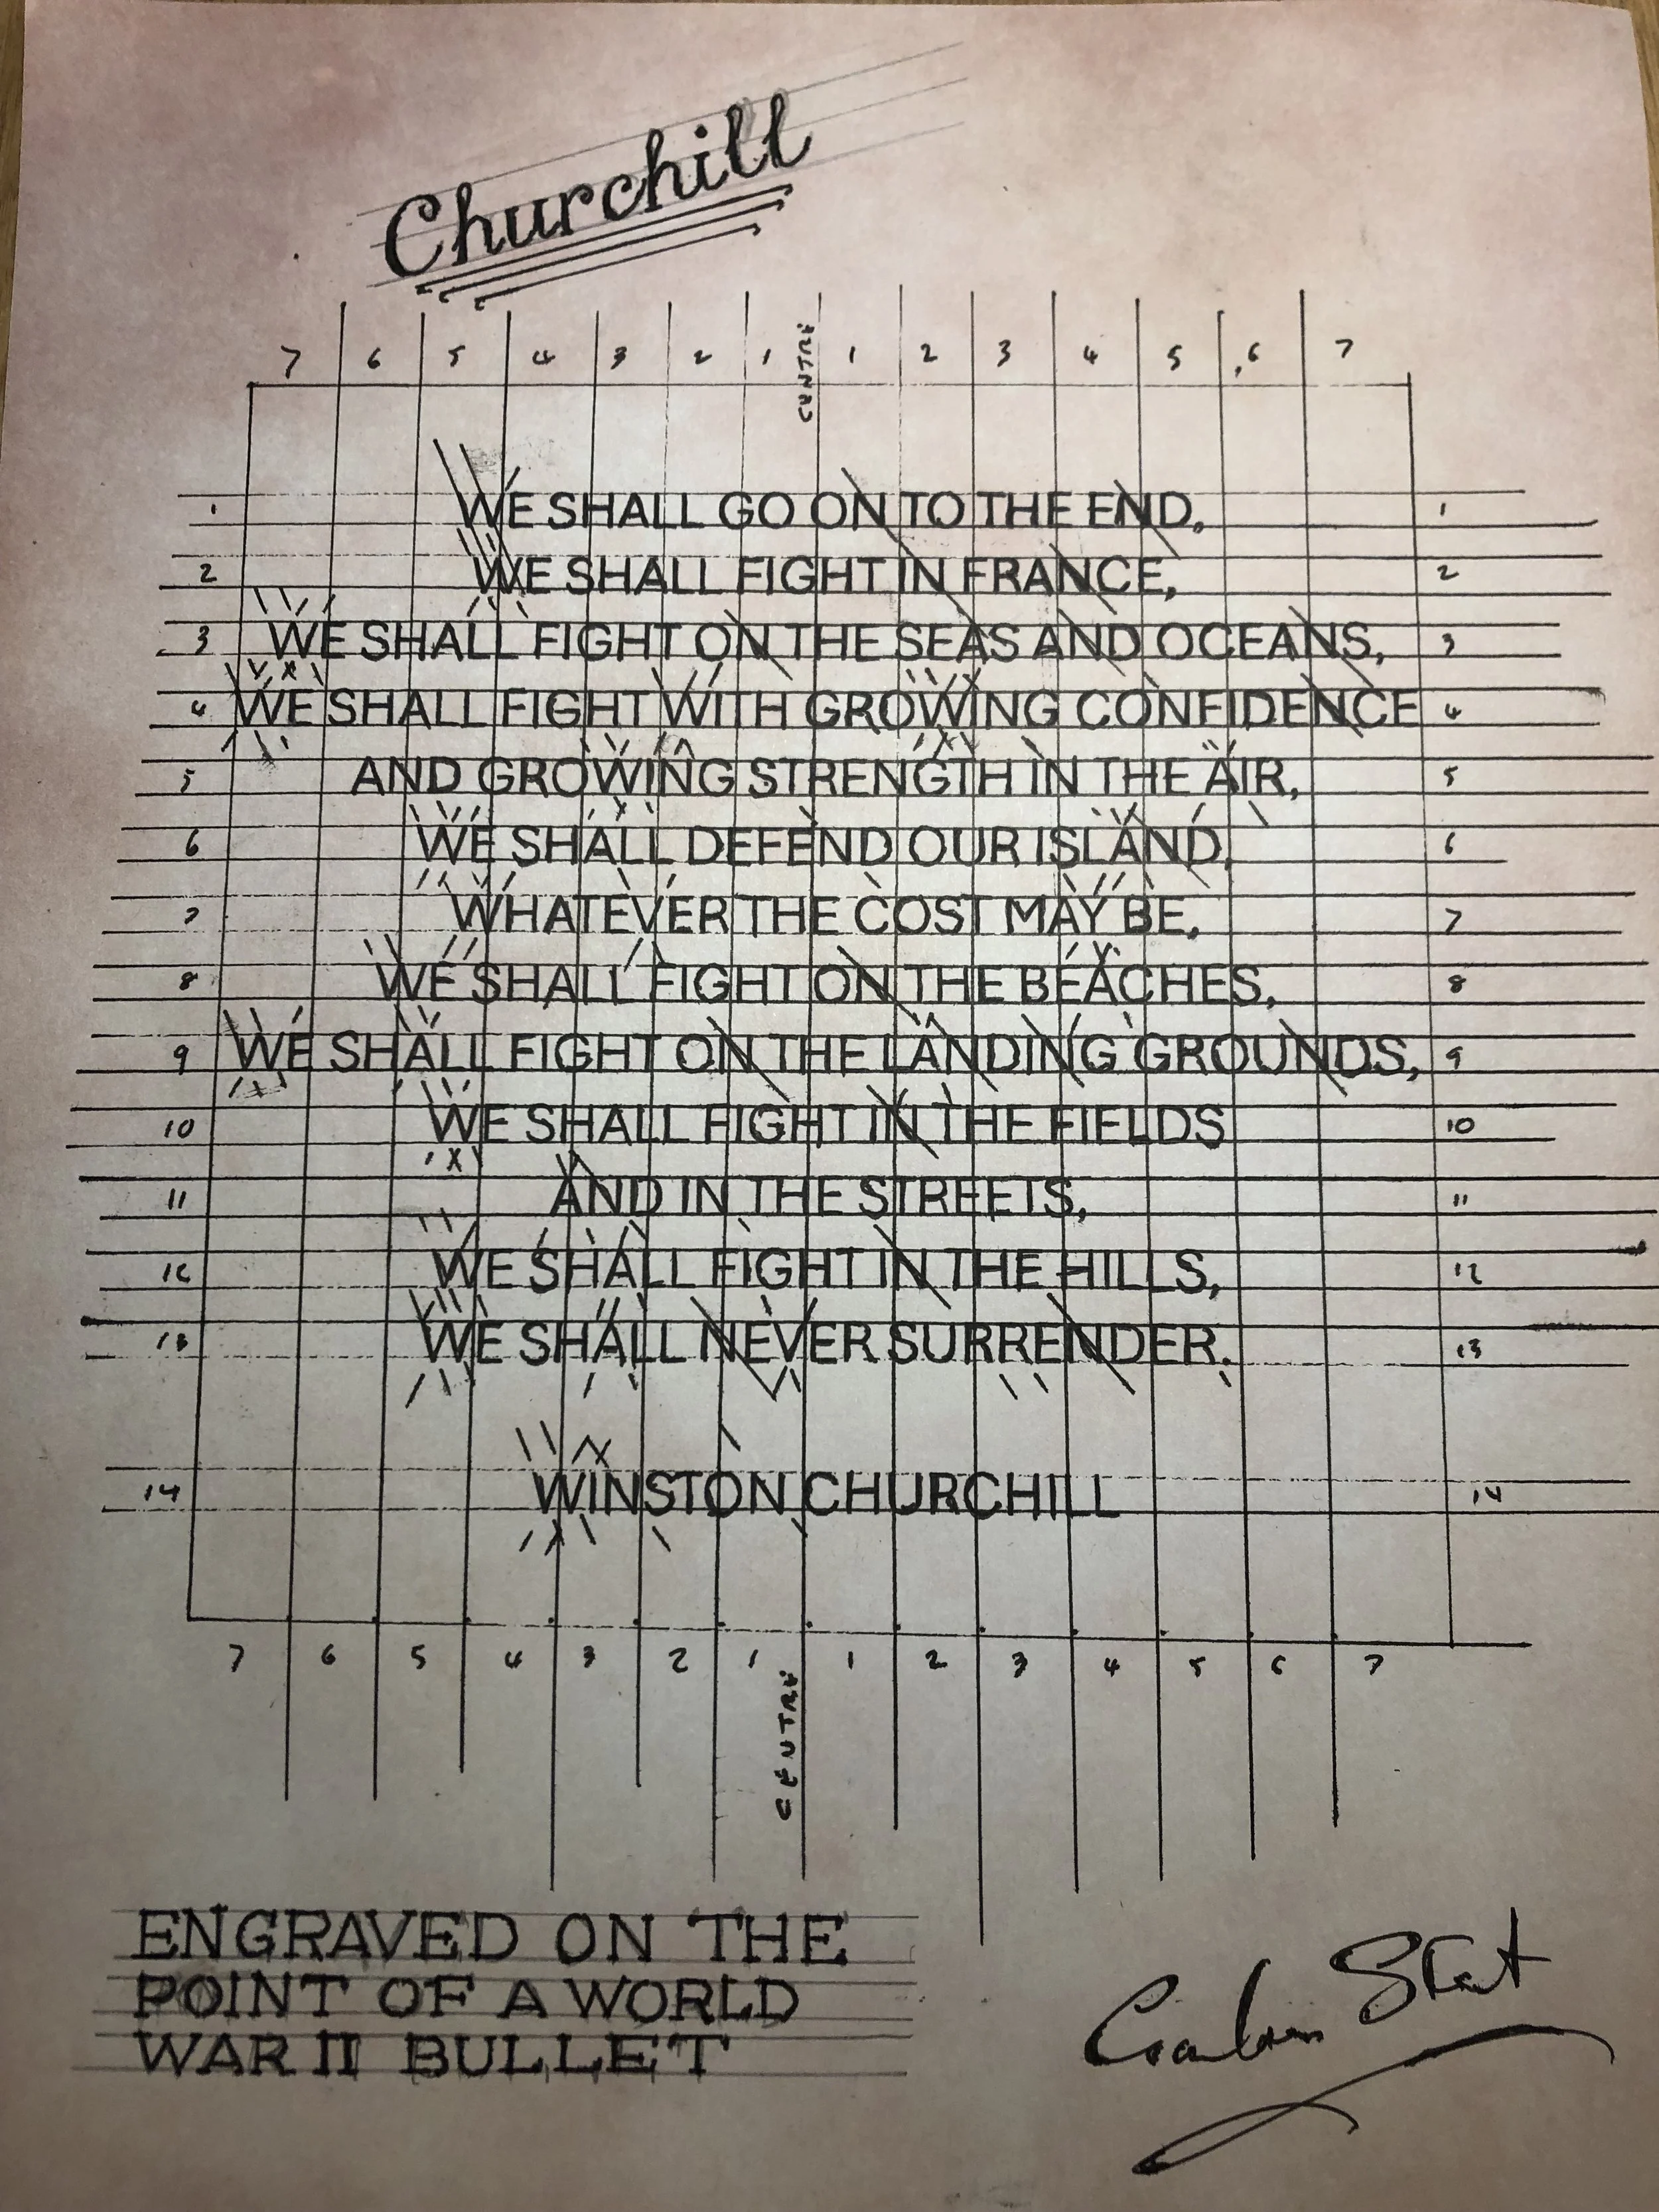 Churchill
7 6 5 4 3 2 1 CENTRE 1 2 3 4 5 6 7
1 WE SHALL GO ON TO THE END, 1
2 WE SHALL FIGHT IN FRANCE, 2
3 WE SHALL FIGHT ON THE SEAS AND OCEANS, 3
4 WE SHALL FIGHT WITH GROWING CONFIDENCE 4
5 AND GROWING STRENGTH IN THE AIR, 5
6 WE SHALL DEFEND OUR ISLAND, 6
7 WHATEVER THE COST MAY BE, 7
8 WE SHALL FIGHT ON THE BEACHES, 8
9 WE SHALL FIGHT ON THE LANDING GROUNDS, 9
10 WE SHALL FIGHT IN THE FIELDS 10
11 AND IN THE STREETS, 11
12 WE SHALL FIGHT IN THE HILLS, 12
13 WE SHALL NEVER SURRENDER. 13
14 WINSTON CHURCHILL 14
7 6 5 4 3 2 1 CENTRE 1 2 3 4 5 6 7
ENGRAVED ON THE
POINT OF A WORLD
WAR II BULLET